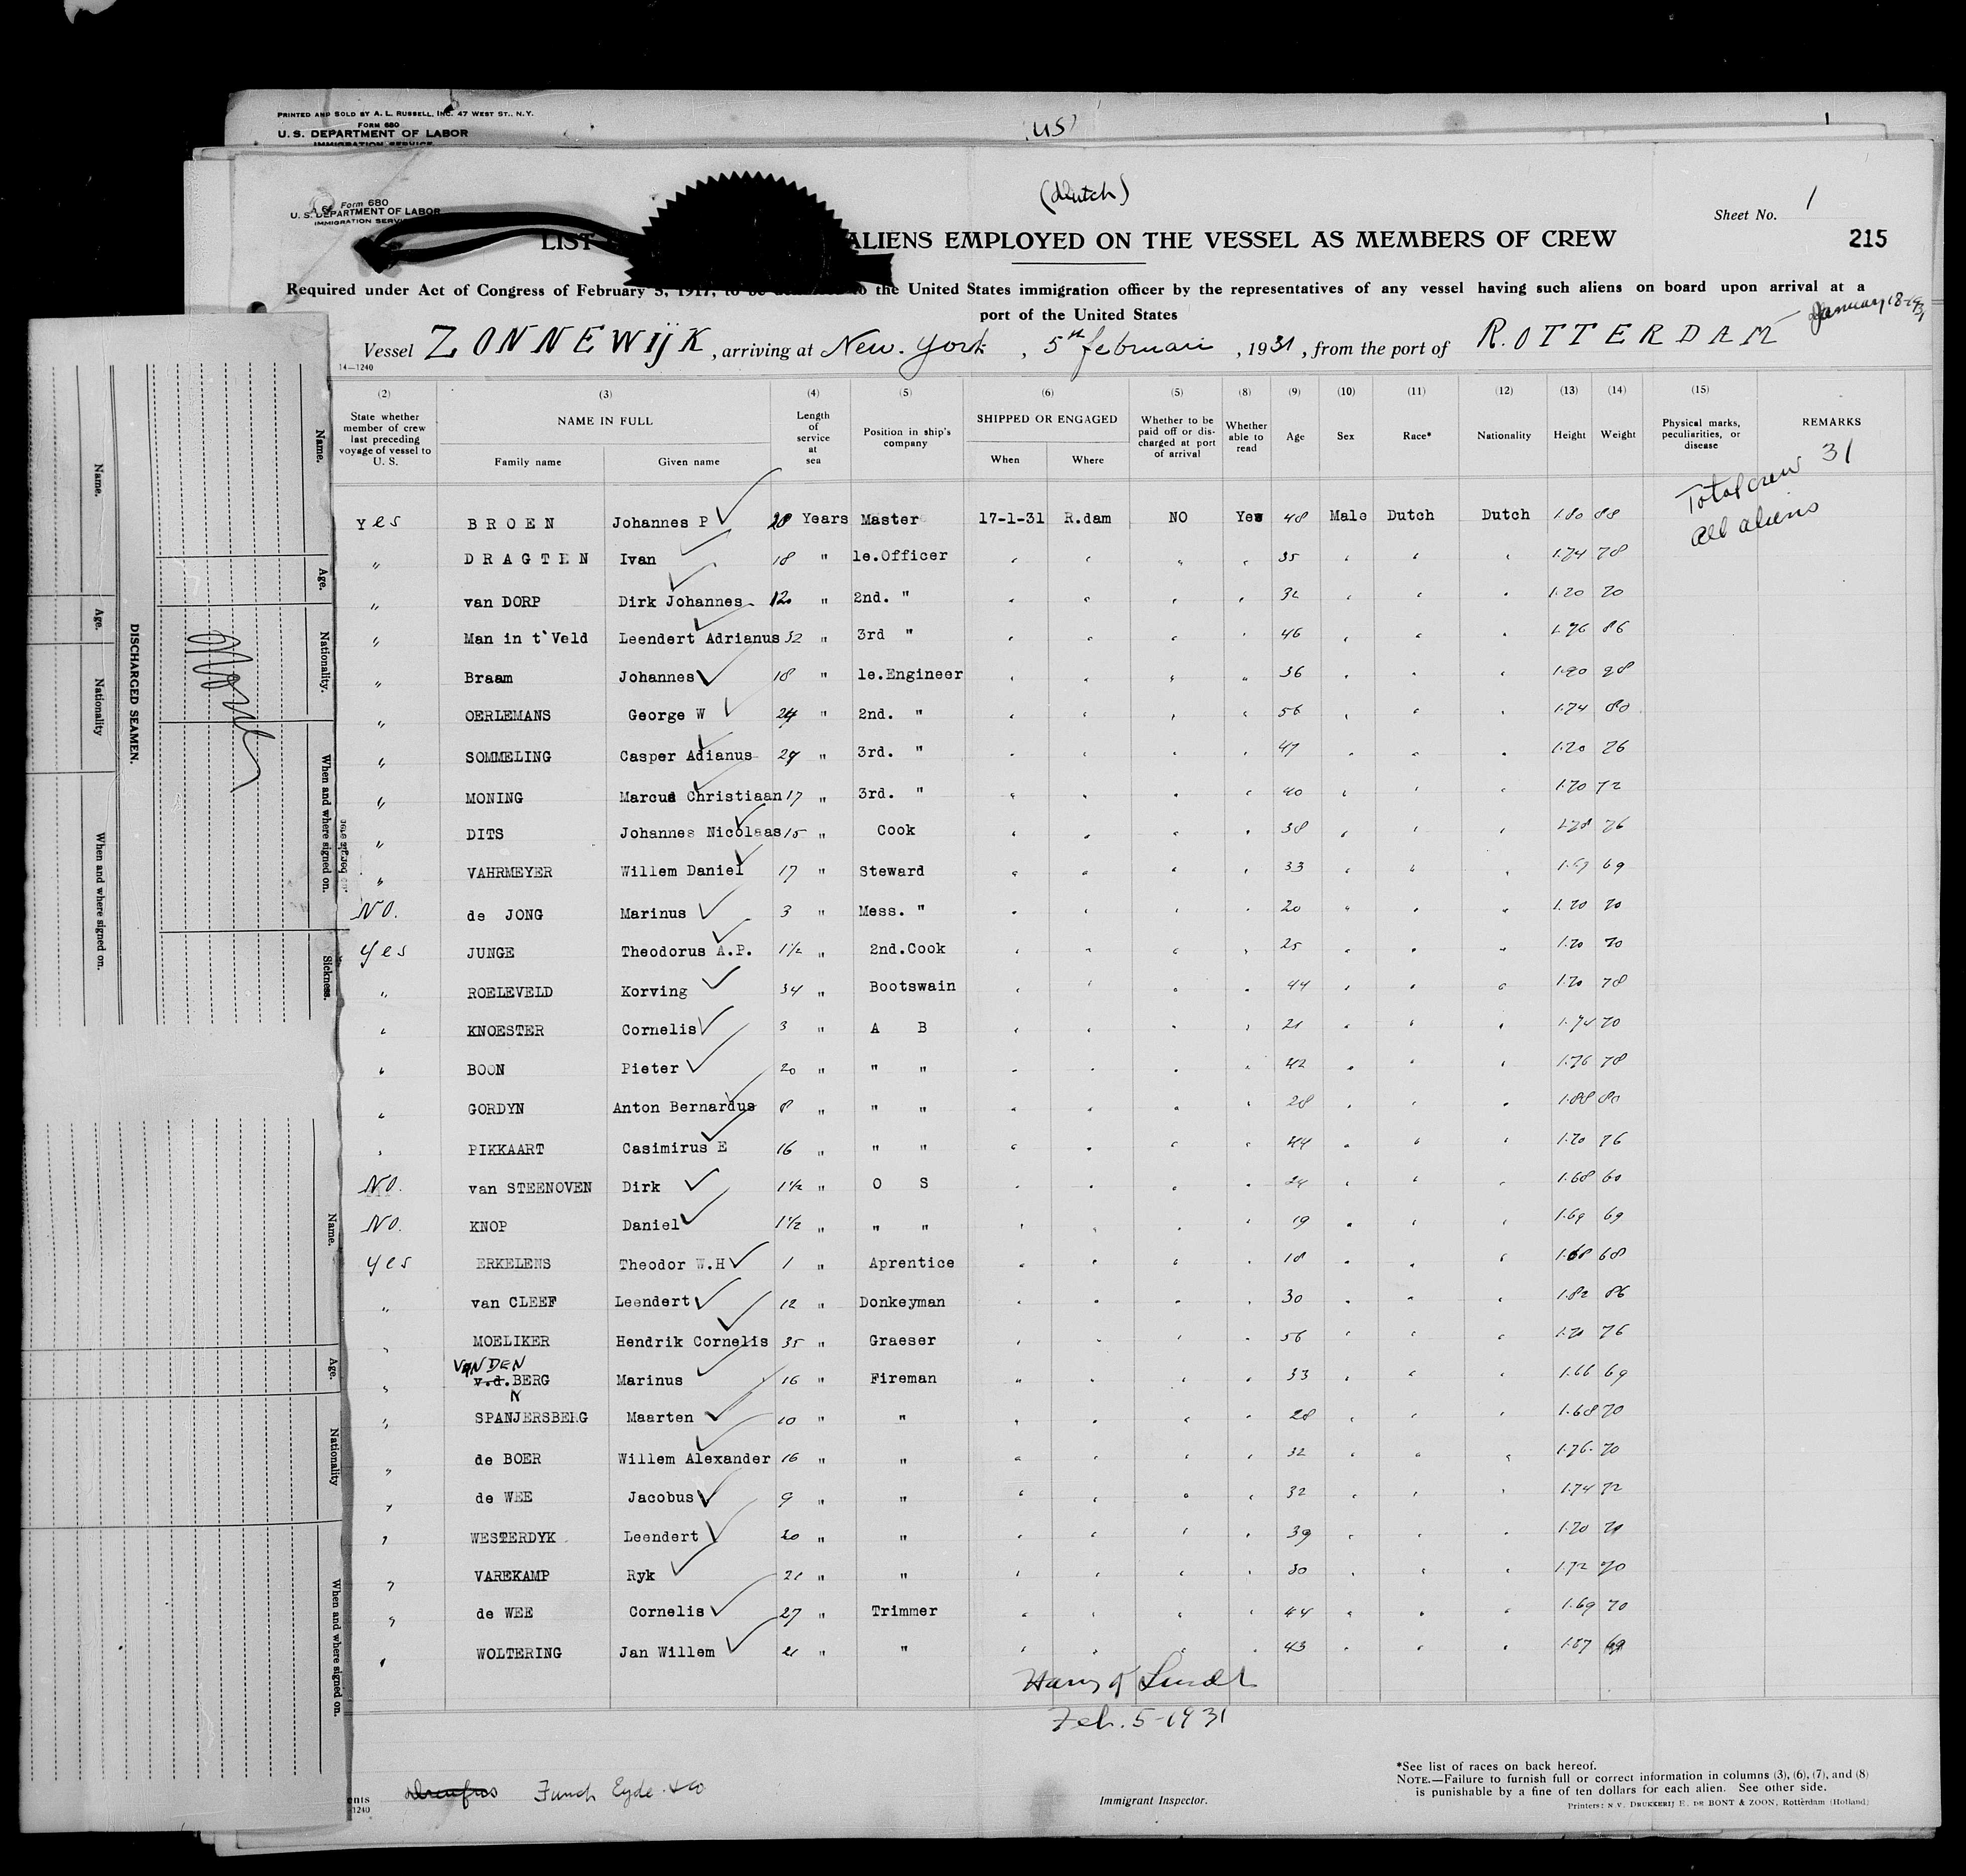 PRINTED AND SOLD BY A. L. RUSSELL, INC. 47 WEST ST., N.Y.
FORM 680
U. S. DEPARTMENT OF LABOR
IMMIGRATION SERVICE
US
1
(Dutch)
Form 680
U. S. DEPARTMENT OF LABOR
IMMIGRATION SERVICE
Sheet No. 1
LIST ALIENS EMPLOYED ON THE VESSEL AS MEMBERS OF CREW
215
Required under Act of Congress of February 5, 1917, to be the United States immigration officer by the representatives of any vessel having such aliens on board upon arrival at a
port of the United States
January 18-1931
Vessel ZONNEWIJK, arriving at New. York, 5th februari, 1931, from the port of ROTTERDAM
14—1240
(2) (3) (4) (5) (6) (5) (8) (9) (10) (11) (12) (13) (14) (15)
State whether member of crew last preceding voyage of vessel to U. S. NAME IN FULL Family name Given name Length of service at sea Position in ship's company SHIPPED OR ENGAGED When Where Whether to be paid off or discharged at port of arrival Whether able to read Age Sex Race* Nationality Height Weight Physical marks, peculiarities, or disease REMARKS
Total crew 31
All aliens
Yes BROEN Johannes P 28 Years Master 17-1-31 R.dam NO Yes 48 Male Dutch Dutch 1.80 88
" DRAGTEN Ivan 18 " 1e.Officer " " " " 35 " " " 1.74 78
" van DORP Dirk Johannes 12 " 2nd. " " " " " 32 " " " 1.70 70
" Man in t'Veld Leendert Adrianus 32 " 3rd " " " " " 46 " " " 1.76 86
" Braam Johannes 18 " 1e.Engineer " " " " 36 " " " 98
" OERLEMANS George W 24 " 2nd. " " " " " 56 " " " 1.74 80
" SOMMELING Casper Adianus 29 " 3rd. " " " " " 47 " " " 1.70 76
" MONING Marcus Christiaan 17 " 3rd. " " " " " 40 " " " 1.70 72
" DITS Johannes Nicolaas 15 " Cook " " " " 38 " " " 1.78 76
" VAHRMEYER Willem Daniel 17 " Steward " " " " 33 " " " 1.67 69
NO. de JONG Marinus 3 " Mess. " " " " " 20 " " " 1.70 70
Yes JUNGE Theodorus A.P. 1½ " 2nd.Cook " " " " 25 " " " 1.70 70
" ROELEVELD Korving 34 " Bootswain " " " " 44 " " " 1.70 78
" KNOESTER Cornelis 3 " A B " " " " 21 " " " 1.74 70
" BOON Pieter 20 " " " " " " " 42 " " " 1.76 78
" GORDYN Anton Bernardus 8 " " " " " " " 28 " " " 1.88 80
" PIKKAART Casimirus E 16 " " " " " " " 44 " " " 1.70 76
NO. van STEENOVEN Dirk 1½ " O S " " " " 24 " " " 1.68 60
NO. KNOP Daniel 1½ " " " " " " " 19 " " " 1.69 69
Yes ERKELENS Theodor W.H 1 " Aprentice " " " " 18 " " " 1.68 68
" van CLEEF Leendert 12 " Donkeyman " " " " 30 " " " 1.82 86
" MOELIKER Hendrik Cornelis 35 " Graeser " " " " 56 " " " 1.70 76
VAN DEN
" v.d. BERG Marinus 16 " Fireman " " " " 33 " " " 1.66 69
N
" SPANJERSBERG Maarten 10 " " " " " " 28 " " " 1.68 70
" de BOER Willem Alexander 16 " " " " " " 32 " " " 1.76 70
" de WEE Jacobus 9 " " " " " " 32 " " " 1.74 72
" WESTERDYK Leendert 20 " " " " " " 39 " " " 1.70 70
" VAREKAMP Ryk 21 " " " " " " 30 " " " 1.72 70
" de WEE Cornelis 27 " Trimmer " " " " 44 " " " 1.69 70
" WOLTERING Jan Willem 21 " " " " " " 43 " " " 1.87 69
Feb. 5-1931
Funch Edye & Co
1240
Immigrant Inspector.
*See list of races on back hereof.
NOTE.—Failure to furnish full or correct information in columns (3), (6), (7), and (8)
is punishable by a fine of ten dollars for each alien. See other side.
Printers: N.V. DRUKKERIJ E. DE BONT & ZOON, Rotterdam (Holland)
DISCHARGED SEAMEN.
Name. Age. Nationality When and where signed on.
Name. Age. Nationality. When and where signed on. Sickness.
Name. Age. Nationality When and where signed on.